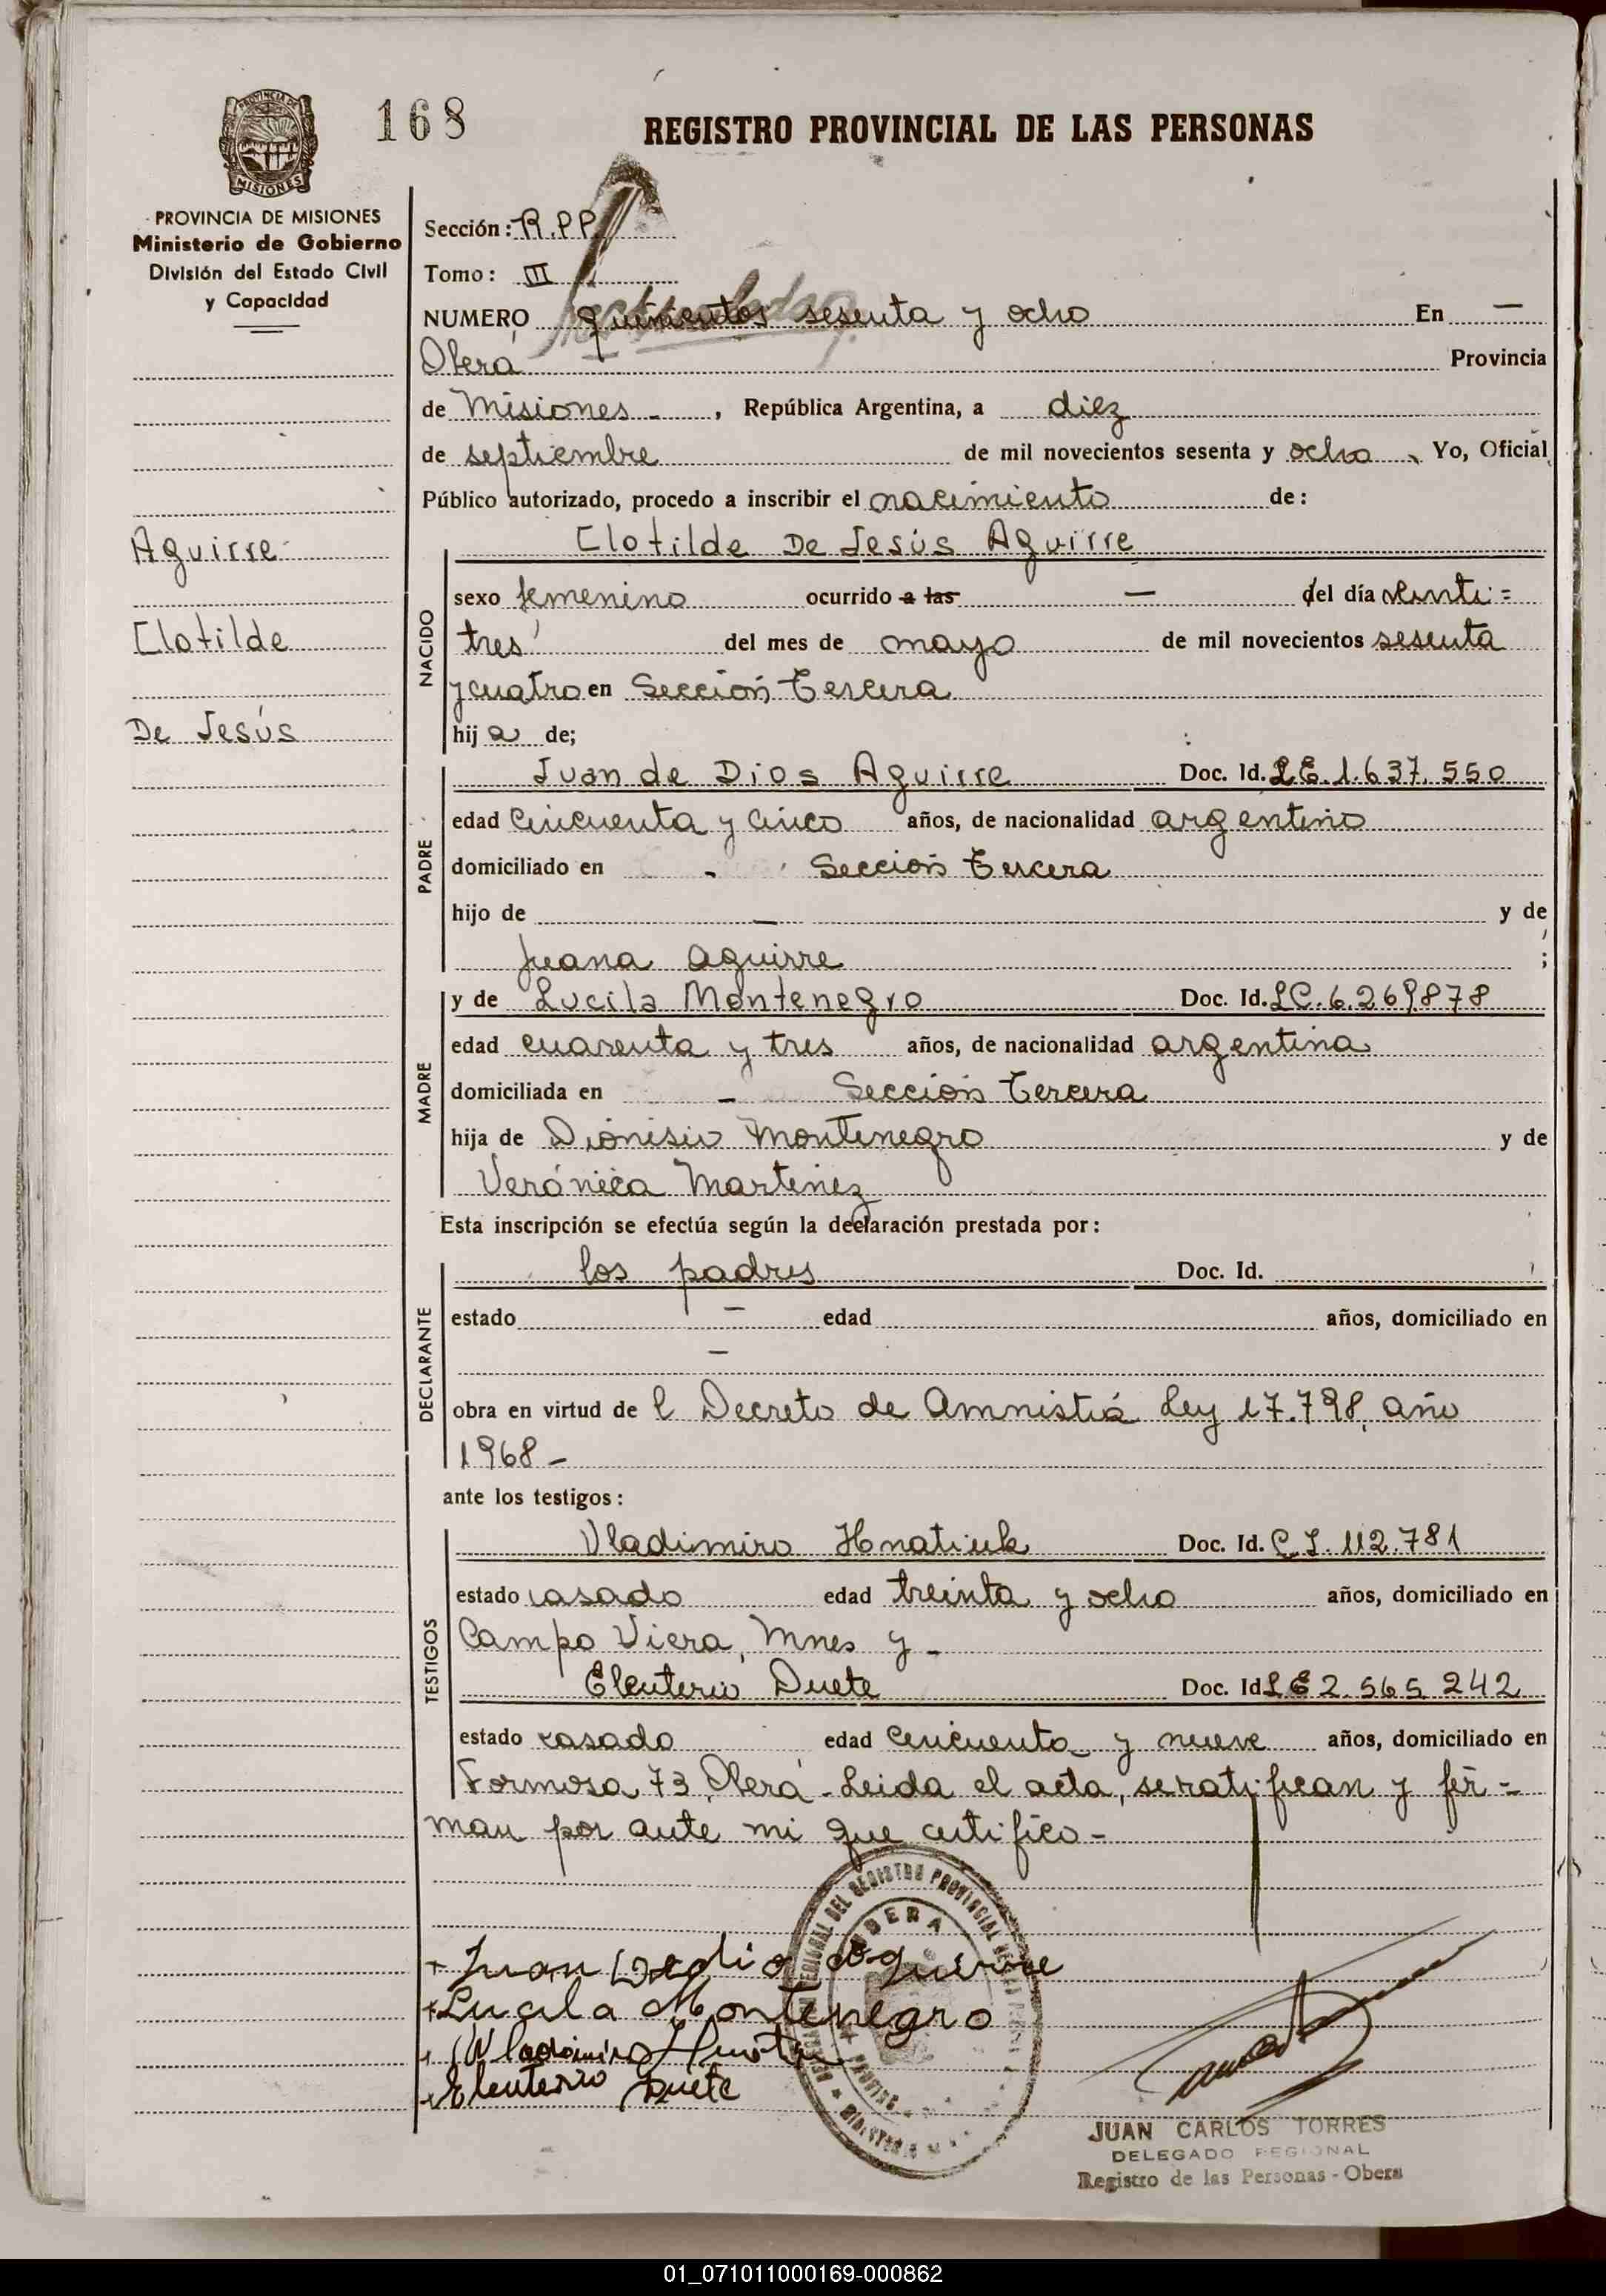 168
REGISTRO PROVINCIAL DE LAS PERSONAS
PROVINCIA DE MISIONES
Ministerio de Gobierno
División del Estado Civil
y Capacidad
Sección: R.P.P.
Tomo: III
NUMERO quinientos sesenta y ocho En —
Oberá Provincia
de Misiones - , República Argentina, a diez
de septiembre de mil novecientos sesenta y ocho, Yo, Oficial
Público autorizado, procedo a inscribir el nacimiento de:
Aguirre
Clotilde
De Jesús
Clotilde De Jesús Aguirre
NACIDO
sexo femenino ocurrido a las — del día veinti=
tres del mes de mayo de mil novecientos sesenta
y cuatro en Sección Tercera
hija de;
PADRE
Juan de Dios Aguirre Doc. Id. LE.1.637.550
edad cincuenta y cinco años, de nacionalidad argentino
domiciliado en - Sección Tercera
hijo de — y de
Juana Aguirre ;
MADRE
y de Lucila Montenegro Doc. Id. LC.6.269.878
edad cuarenta y tres años, de nacionalidad argentina
domiciliada en - Sección Tercera
hija de Dionisio Montenegro y de
Verónica Martinez
Esta inscripción se efectúa según la declaración prestada por:
DECLARANTE
los padres Doc. Id.
estado — edad años, domiciliado en
—
obra en virtud de l Decreto de Amnistía Ley 17.798, año
1968 -
ante los testigos:
TESTIGOS
Vladimiro Hnatiuk Doc. Id. C.I. 112.781
estado casado edad treinta y ocho años, domiciliado en
Campo Viera, Mnes y -
Eleuterio Duete Doc. Id LE 2.565.242
estado casado edad cincuenta y nueve años, domiciliado en
Formosa 73, Oberá - Leida el acta, se ratifican y fir=
man por ante mi que certifico -
OBERA
+ Juan Dedio Aguirre
+ Lucila Montenegro
+ Eleuterio Duete
JUAN CARLOS TORRES
DELEGADO REGIONAL
Registro de las Personas - Obera
01_071011000169-000862